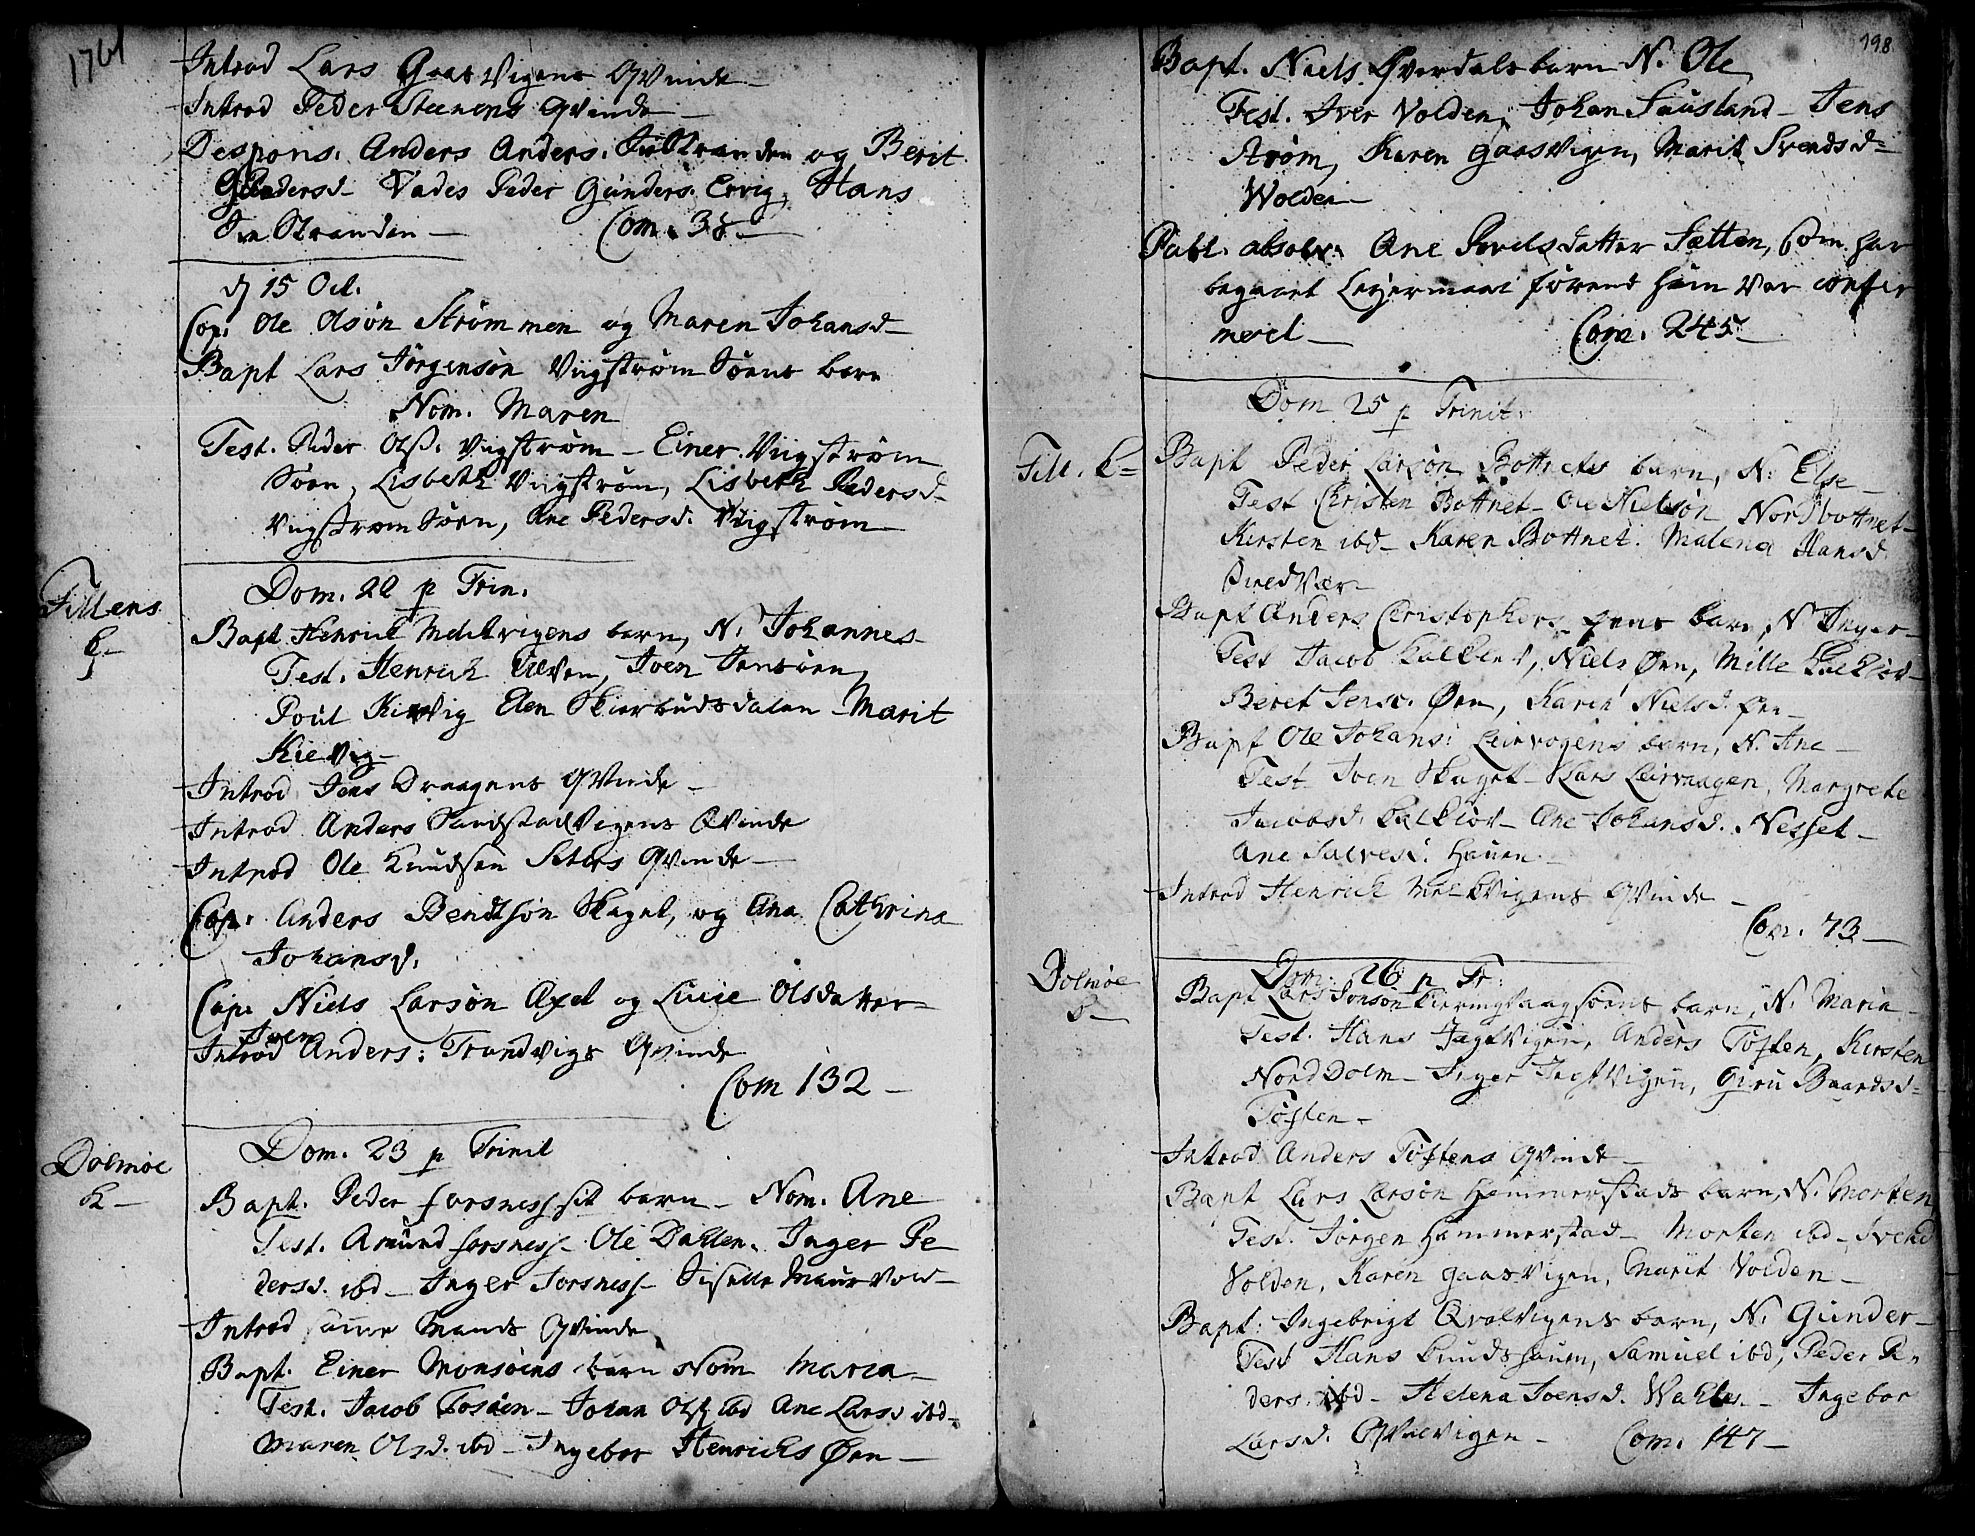 1761
Introd Lars Gaasvigens Qvinde
Introd Peder Steenens Qvinde
Despons. Anders Anders. Stranden og Berit
Gundersd- Vades Peder Gunders. Ervig, Hans
Stranden - Com. 38 -
d 15 Oct.
Cop. Ole Olsøn Strømmen og Maren Johansd-
Bapt Lars Jørgensøn Viigstrøm Søens barn
Nom. Maren
Test. Peder Olss. Viigstrøm - Einer Viigstrøm
Søen, Lisbeth Viigstrøm, Lisbeth Pedersd-
Viigstrøm Søen, Ane Pedersd. Viigstrøm
Fillens
k-
Dom. 22 p Trin.
Bapt Henrich Melchvigens barn, N. Johannes
Test. Henrich Ulven, Joen Jensøen
Poul Kievig Elen Skierbudsdalen - Marit
Kievig -
Introd Jens Draagens Qvinde -
Introd Anders Sandstadvigens Qvinde
Introd Ole Knudsen Sæters Qvinde -
Cop. Anders Bendtsøn Skaget, og Ana Cathrina
Johansd.
Cop. Niels Larsøn Axel og Lucie Olsdatter -
Joen
Introd Anders: Trandvigs Qvinde
Com 132 -
Dolmøe
k -
Dom. 23 p Trinit
Bapt. Peder forsness sit barn - Nom. Ane
Test. Amund forsness - Ole Dahlen. Inger Pe
dersd. ibd - Inger Forsness - Sisselle Maurvold -
Introd samme Mands Qvinde
Bapt. Einer Monsøens barn Nom Maria -
Test. Jacob - Johan Olss ibd Ane Larsd ibd -
Maren Olsd. ibd - Ingebor Henrichs Øen -
198
Bapt. Niels Øverdals barn N. Ole
Test. Iver Volden, Johan Fausland - Jens
Strøm, Karen Gaasvigen, Marit Svendsd-
Wolden -
Publ. absolv. Ane Povelsdatter Sætten, som har
begaaet Leyermaal førend hun var confir
meret - Com. 245 -
Dom 25 p Trinit.
Fill. k-
Bapt Peder Larsøn Bottnets barn, N. Else -
Test Christen Bottnet - Ole Nielsøn Nordbottnet -
Kirsten ibd - Karen Bottnet. Malena Hansd

Bapt Anders Christophers. Øens barn, N Inger -
Test Jacob Kalkløv, Niels Øen, Mille Kalkløv -
Beret Jensd. Øen, Karen Nielsd. Øen -
Bapt Ole Johans: Leirvogens barn, N. Ane -
Test Joen Skaget - Lars Leirvaagen, Margrete
Jacobsd. Kalkløv - Ane Johansd. Nesset -
Ane Salvesd. Hauen -
Introd Henrich Melckvigens Qvinde -
Com. 73 -
Dolmøe
k -
Dom. 26 p Tr:
Bapt Lars Jonsøn barn, N. Maria -
Test. Hans Jægtvigen, Anders Tøften, Kirsten
Norddolm - Inger Jægtvigen, Guru Baardsd-
Tøften -
Introd Anders Tøftens Qvinde -
Bapt Lars Larsøn Hammerstads barn, N. Morten
Test. Jørgen Hammerstad - Morten ibd - Svend
Volden, Karen Gaasvigen, Marit Volden -
Bapt. Ingebrigt Qvalvigens barn, N. Gunder -
Test Hans Kundshauen, Samuel ibd, Peder Pe,
ders. ibd - Helena Joensd. - Ingebor
Larsd. Qvalvigen - Com. 147 -